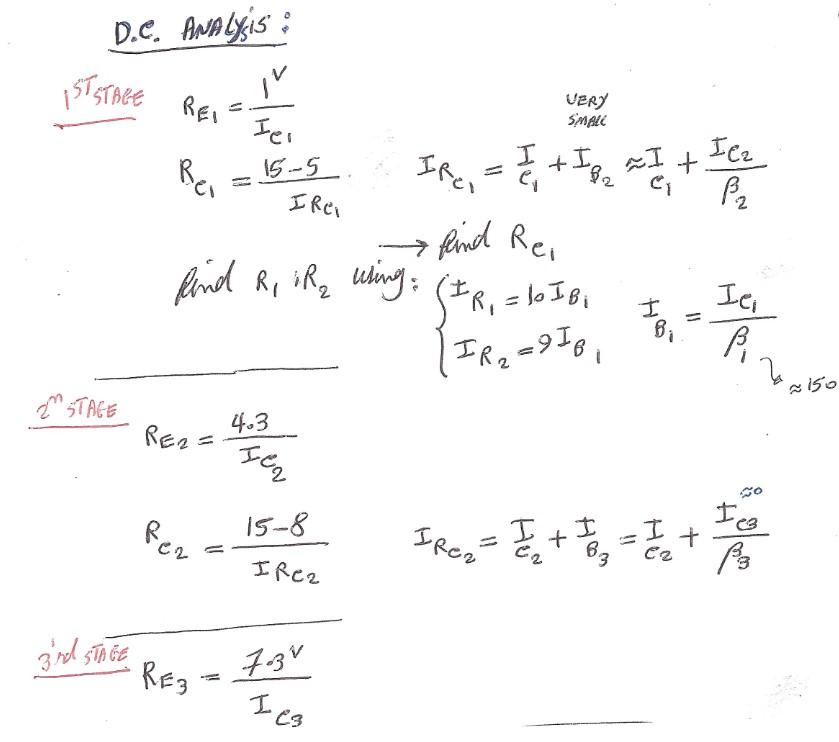 D.C. ANALYSIS:
1ST STAGE
R_E1 = 1V / I_C1
VERY SMALL
R_C1 = (15-5) / I_RC1
I_RC1 = I_C1 + I_B2 ≈ I_C1 + I_C2 / β_2
→ find R_C1
find R_1, R_2 using: { I_R1 = 10 I_B1
I_R2 = 9 I_B1
I_B1 = I_C1 / β_1
≈ 150
2n STAGE
R_E2 = 4.3 / I_C2
R_C2 = (15-8) / I_RC2
I_RC2 = I_C2 + I_B3 = I_C2 + I_C3 / β_3
≈0
3rd STAGE
R_E3 = 7.3V / I_C3